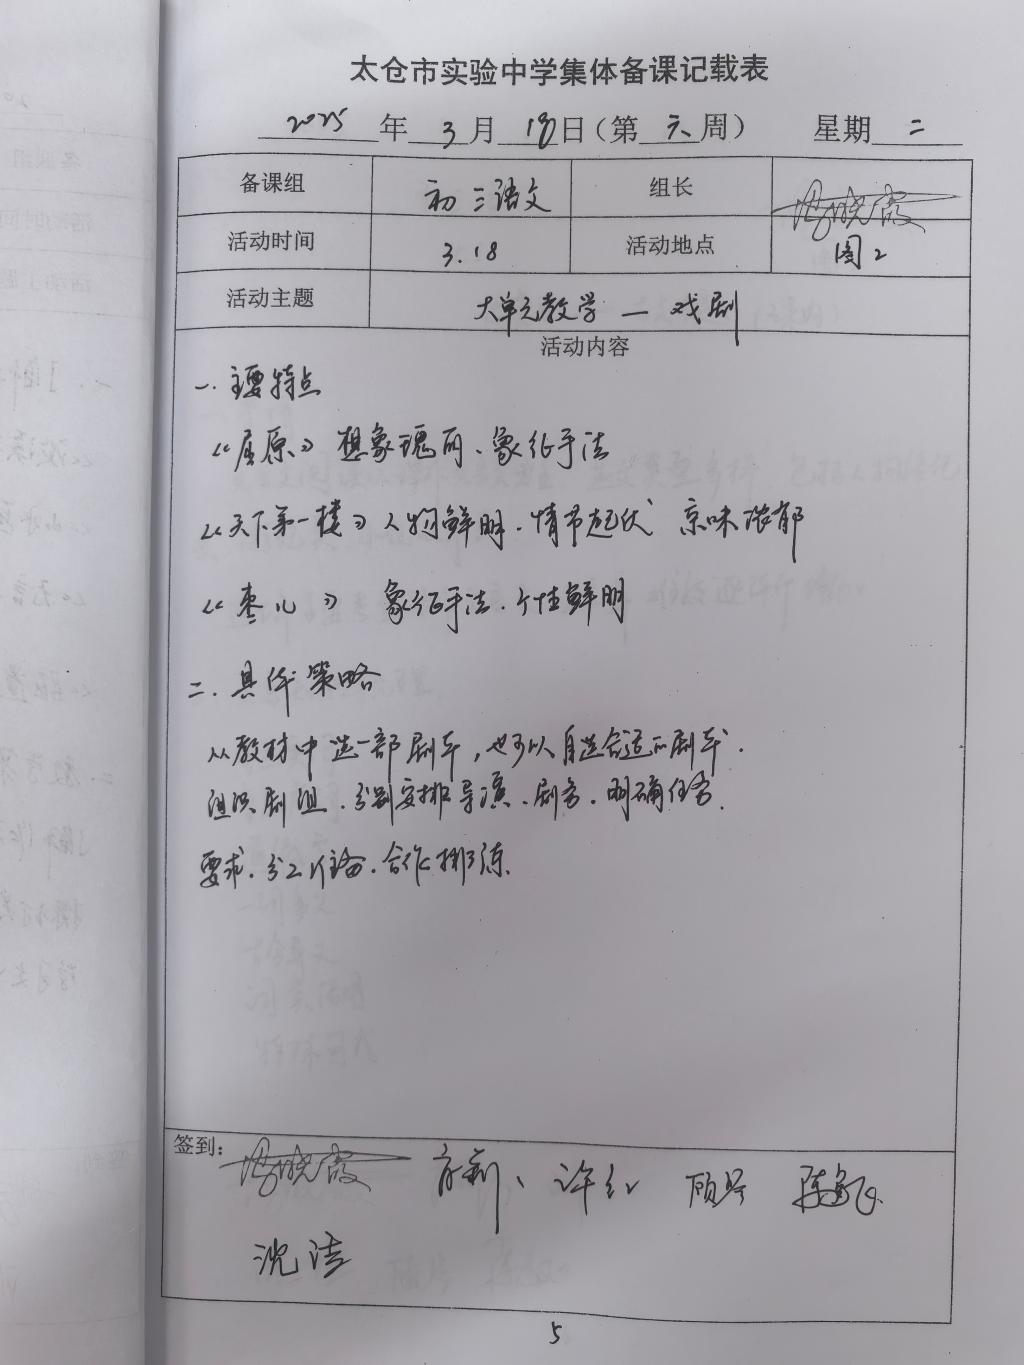 太仓市实验中学集体备课记载表
2025 年 3 月 18 日（第 六 周） 星期 二
备课组 初三语文 组长
活动时间 3.18 活动地点 图2
活动主题 大单元教学 — 戏剧
活动内容
一. 主要特点
《屈原》 想象瑰丽、象征手法
《天下第一楼》 人物鲜明、情节起伏 京味浓郁
《枣儿》 象征手法、个性鲜明
二. 具体策略
从教材中选一部剧本，也可以自选合适的剧本.
组织剧组、分别安排导演、剧务、明确任务
要求、分工讨论、合作排练.
签到: 许红
沈洁
5